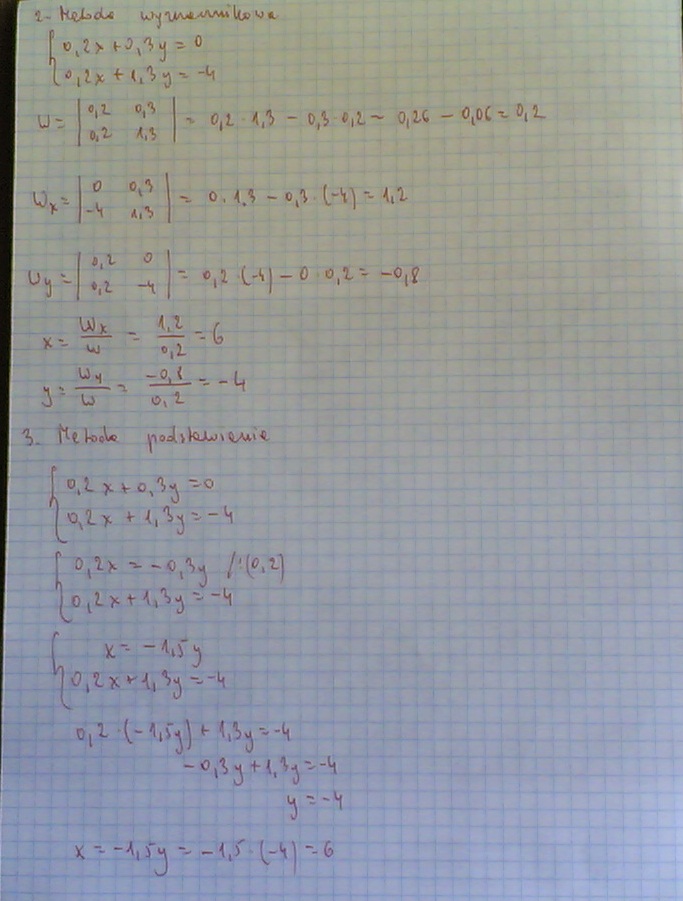 2. Metoda wyznacznikowa
{ 0,2x + 0,3y = 0
{ 0,2x + 1,3y = -4
W = | 0,2 0,3 | = 0,2 · 1,3 - 0,3 · 0,2 = 0,26 - 0,06 = 0,2
| 0,2 1,3 |
Wx = | 0 0,3 | = 0 · 1,3 - 0,3 · (-4) = 1,2
| -4 1,3 |
Wy = | 0,2 0 | = 0,2 · (-4) - 0 · 0,2 = -0,8
| 0,2 -4 |
x = Wx/W = 1,2/0,2 = 6
y = Wy/W = -0,8/0,2 = -4
3. Metoda podstawiania
{ 0,2x + 0,3y = 0
{ 0,2x + 1,3y = -4
{ 0,2x = -0,3y /:(0,2)
{ 0,2x + 1,3y = -4
{ x = -1,5y
{ 0,2x + 1,3y = -4
0,2 · (-1,5y) + 1,3y = -4
-0,3y + 1,3y = -4
y = -4
x = -1,5y = -1,5 · (-4) = 6